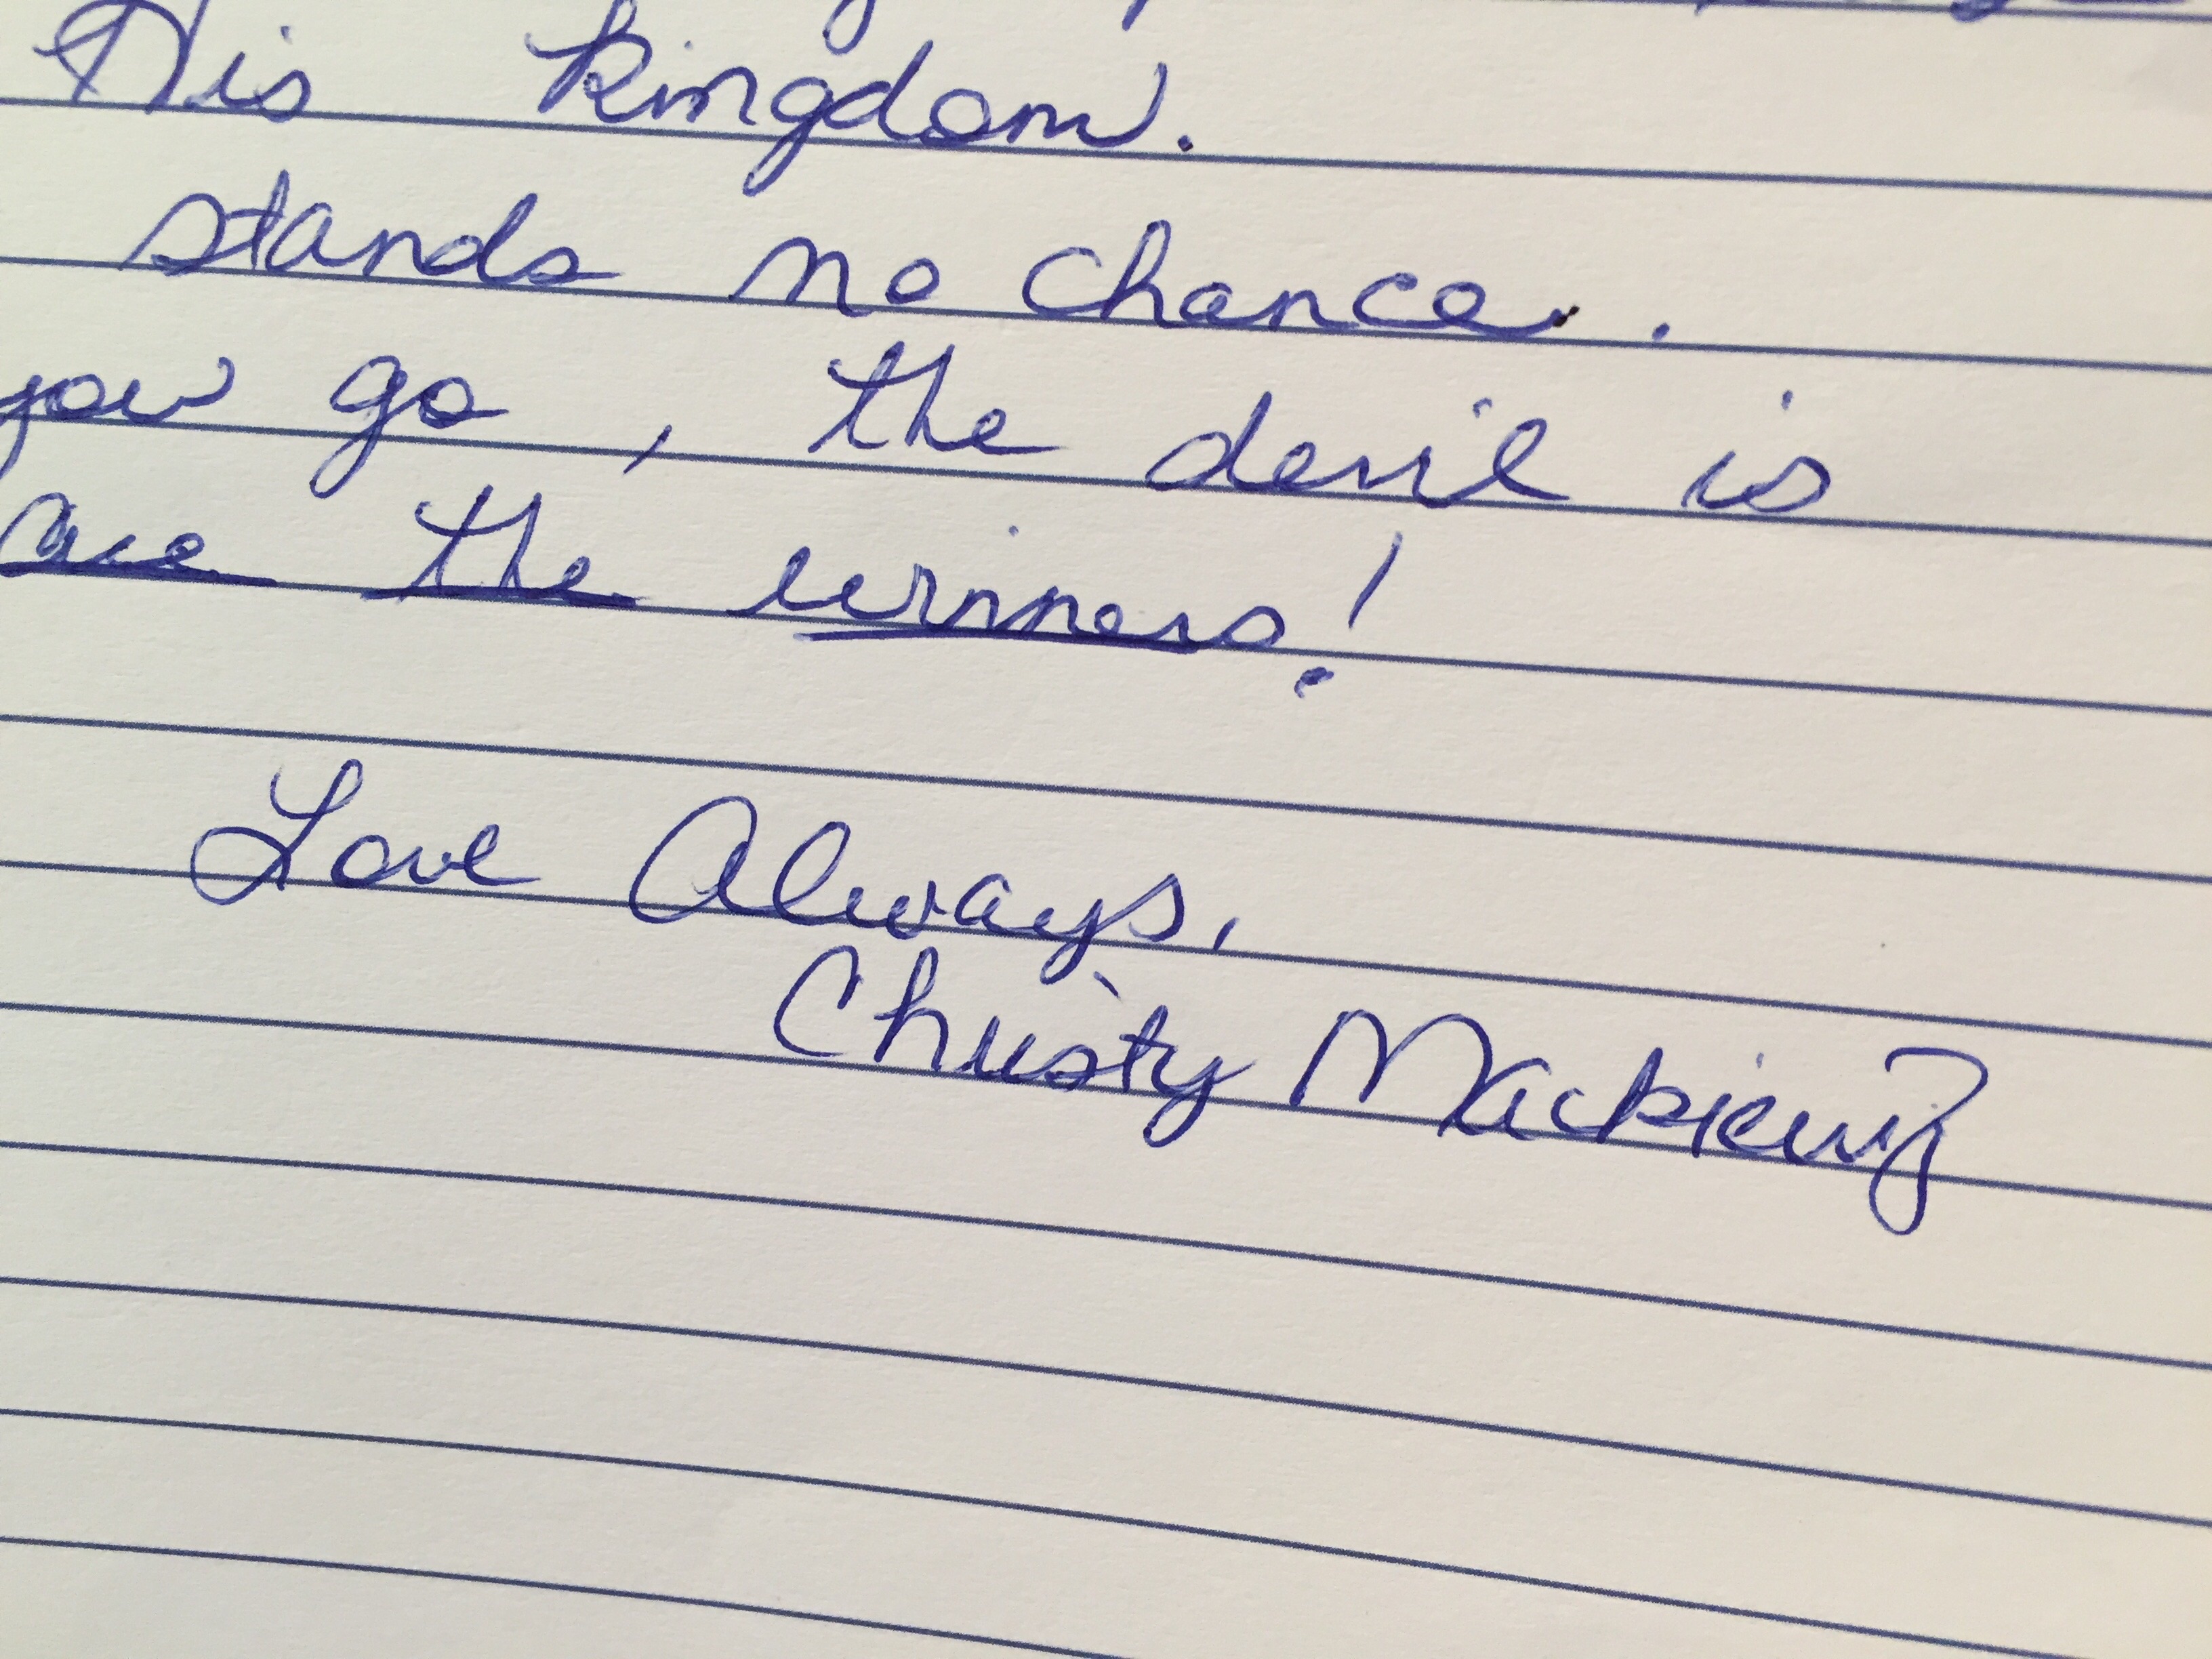 His kingdom.
stands no chance.
you go, the devil is
are the winners!
Love Always,
Christy Mackiewiz